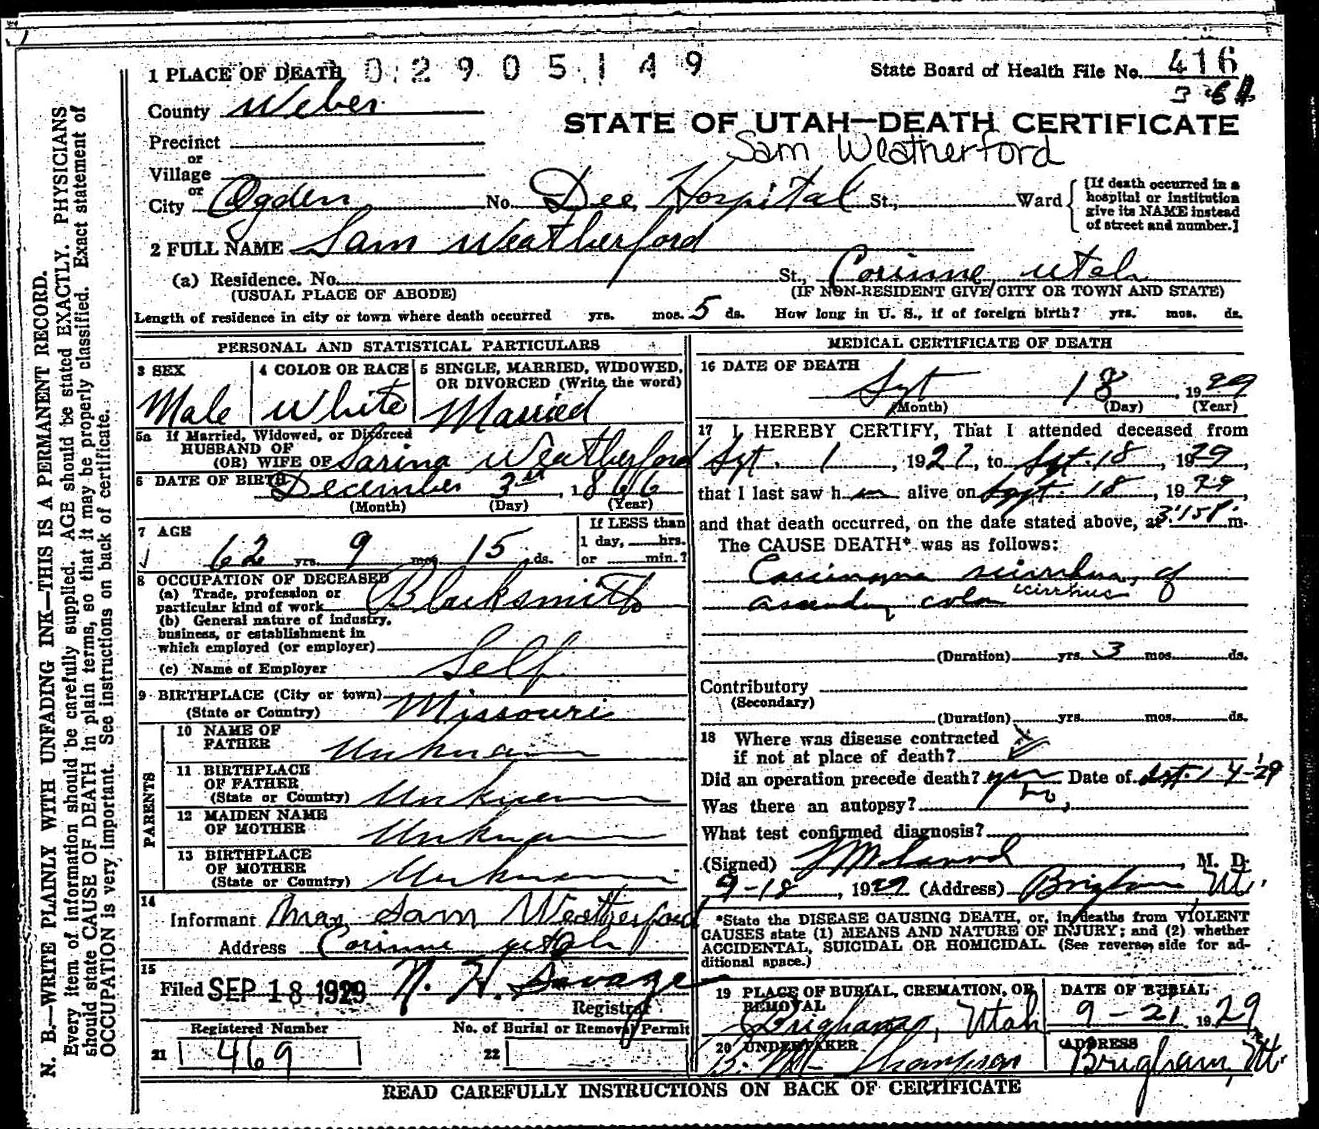 1 PLACE OF DEATH 02905149 State Board of Health File No. 416
County Weber
STATE OF UTAH—DEATH CERTIFICATE
Precinct
or
Village
Sam Weatherford
or
City Ogden No. Dee Hospital St., Ward
[If death occurred in a
hospital or institution
give its NAME instead
of street and number.]
2 FULL NAME Sam Weatherford
(a) Residence. No. St., Corinne, Utah
(USUAL PLACE OF ABODE) (IF NON-RESIDENT GIVE CITY OR TOWN AND STATE)
Length of residence in city or town where death occurred yrs. mos. 5 ds. How long in U. S., if of foreign birth? yrs. mos. ds.
PERSONAL AND STATISTICAL PARTICULARS
3 SEX
Male
4 COLOR OR RACE
White
5 SINGLE, MARRIED, WIDOWED,
OR DIVORCED (Write the word)
Married
5a If Married, Widowed, or Divorced
HUSBAND OF
(OR) WIFE OF Sarina Weatherford
6 DATE OF BIRTH December 3rd, 1866
(Month) (Day) (Year)
7 AGE
62 yrs. 9 mos. 15 ds.
If LESS than
1 day, hrs.
or min.?
8 OCCUPATION OF DECEASED
(a) Trade, profession or
particular kind of work Blacksmith
(b) General nature of industry,
business, or establishment in
which employed (or employer)
(c) Name of Employer Self
9 BIRTHPLACE (City or town)
(State or Country) Missouri
PARENTS
10 NAME OF
FATHER Unknown
11 BIRTHPLACE
OF FATHER
(State or Country) Unknown
12 MAIDEN NAME
OF MOTHER Unknown
13 BIRTHPLACE
OF MOTHER
(State or Country) Unknown
14
Informant Mrs Sam Weatherford
Address Corinne Utah
15
Filed SEP 18 1929 N. H. Savage
Registrar
Registered Number
21 469
No. of Burial or Removal Permit
22
MEDICAL CERTIFICATE OF DEATH
16 DATE OF DEATH
Sept 18, 1929
(Month) (Day) (Year)
17 I HEREBY CERTIFY, That I attended deceased from
Sept. 1, 1929, to Sept. 18, 1929,
that I last saw him alive on Sept. 18, 1929,
and that death occurred, on the date stated above, at m.
The CAUSE DEATH* was as follows:
Carcinoma scirrhus, of
ascending colon scirrhus
(Duration) yrs. 3 mos. ds.
Contributory
(Secondary)
(Duration) yrs. mos. ds.
18 Where was disease contracted
if not at place of death?
Did an operation precede death? yes Date of Sept. 14-29
Was there an autopsy? no
What test confirmed diagnosis?
(Signed) M. D.
9-18, 1929 (Address) Brigham, Ut.
*State the DISEASE CAUSING DEATH, or, in deaths from VIOLENT
CAUSES state (1) MEANS AND NATURE OF INJURY; and (2) whether
ACCIDENTAL, SUICIDAL OR HOMICIDAL. (See reverse side for ad-
ditional space.)
19 PLACE OF BURIAL, CREMATION, OR
REMOVAL
Brigham, Utah
DATE OF BURIAL
9-21, 1929
20 UNDERTAKER
Thompson
ADDRESS
Brigham, Ut.
READ CAREFULLY INSTRUCTIONS ON BACK OF CERTIFICATE
N. B.—WRITE PLAINLY WITH UNFADING INK—THIS IS A PERMANENT RECORD.
Every item of information should be carefully supplied. AGE should be stated EXACTLY. PHYSICIANS
should state CAUSE OF DEATH in plain terms, so that it may be properly classified. Exact statement of
OCCUPATION is very important. See instructions on back of certificate.